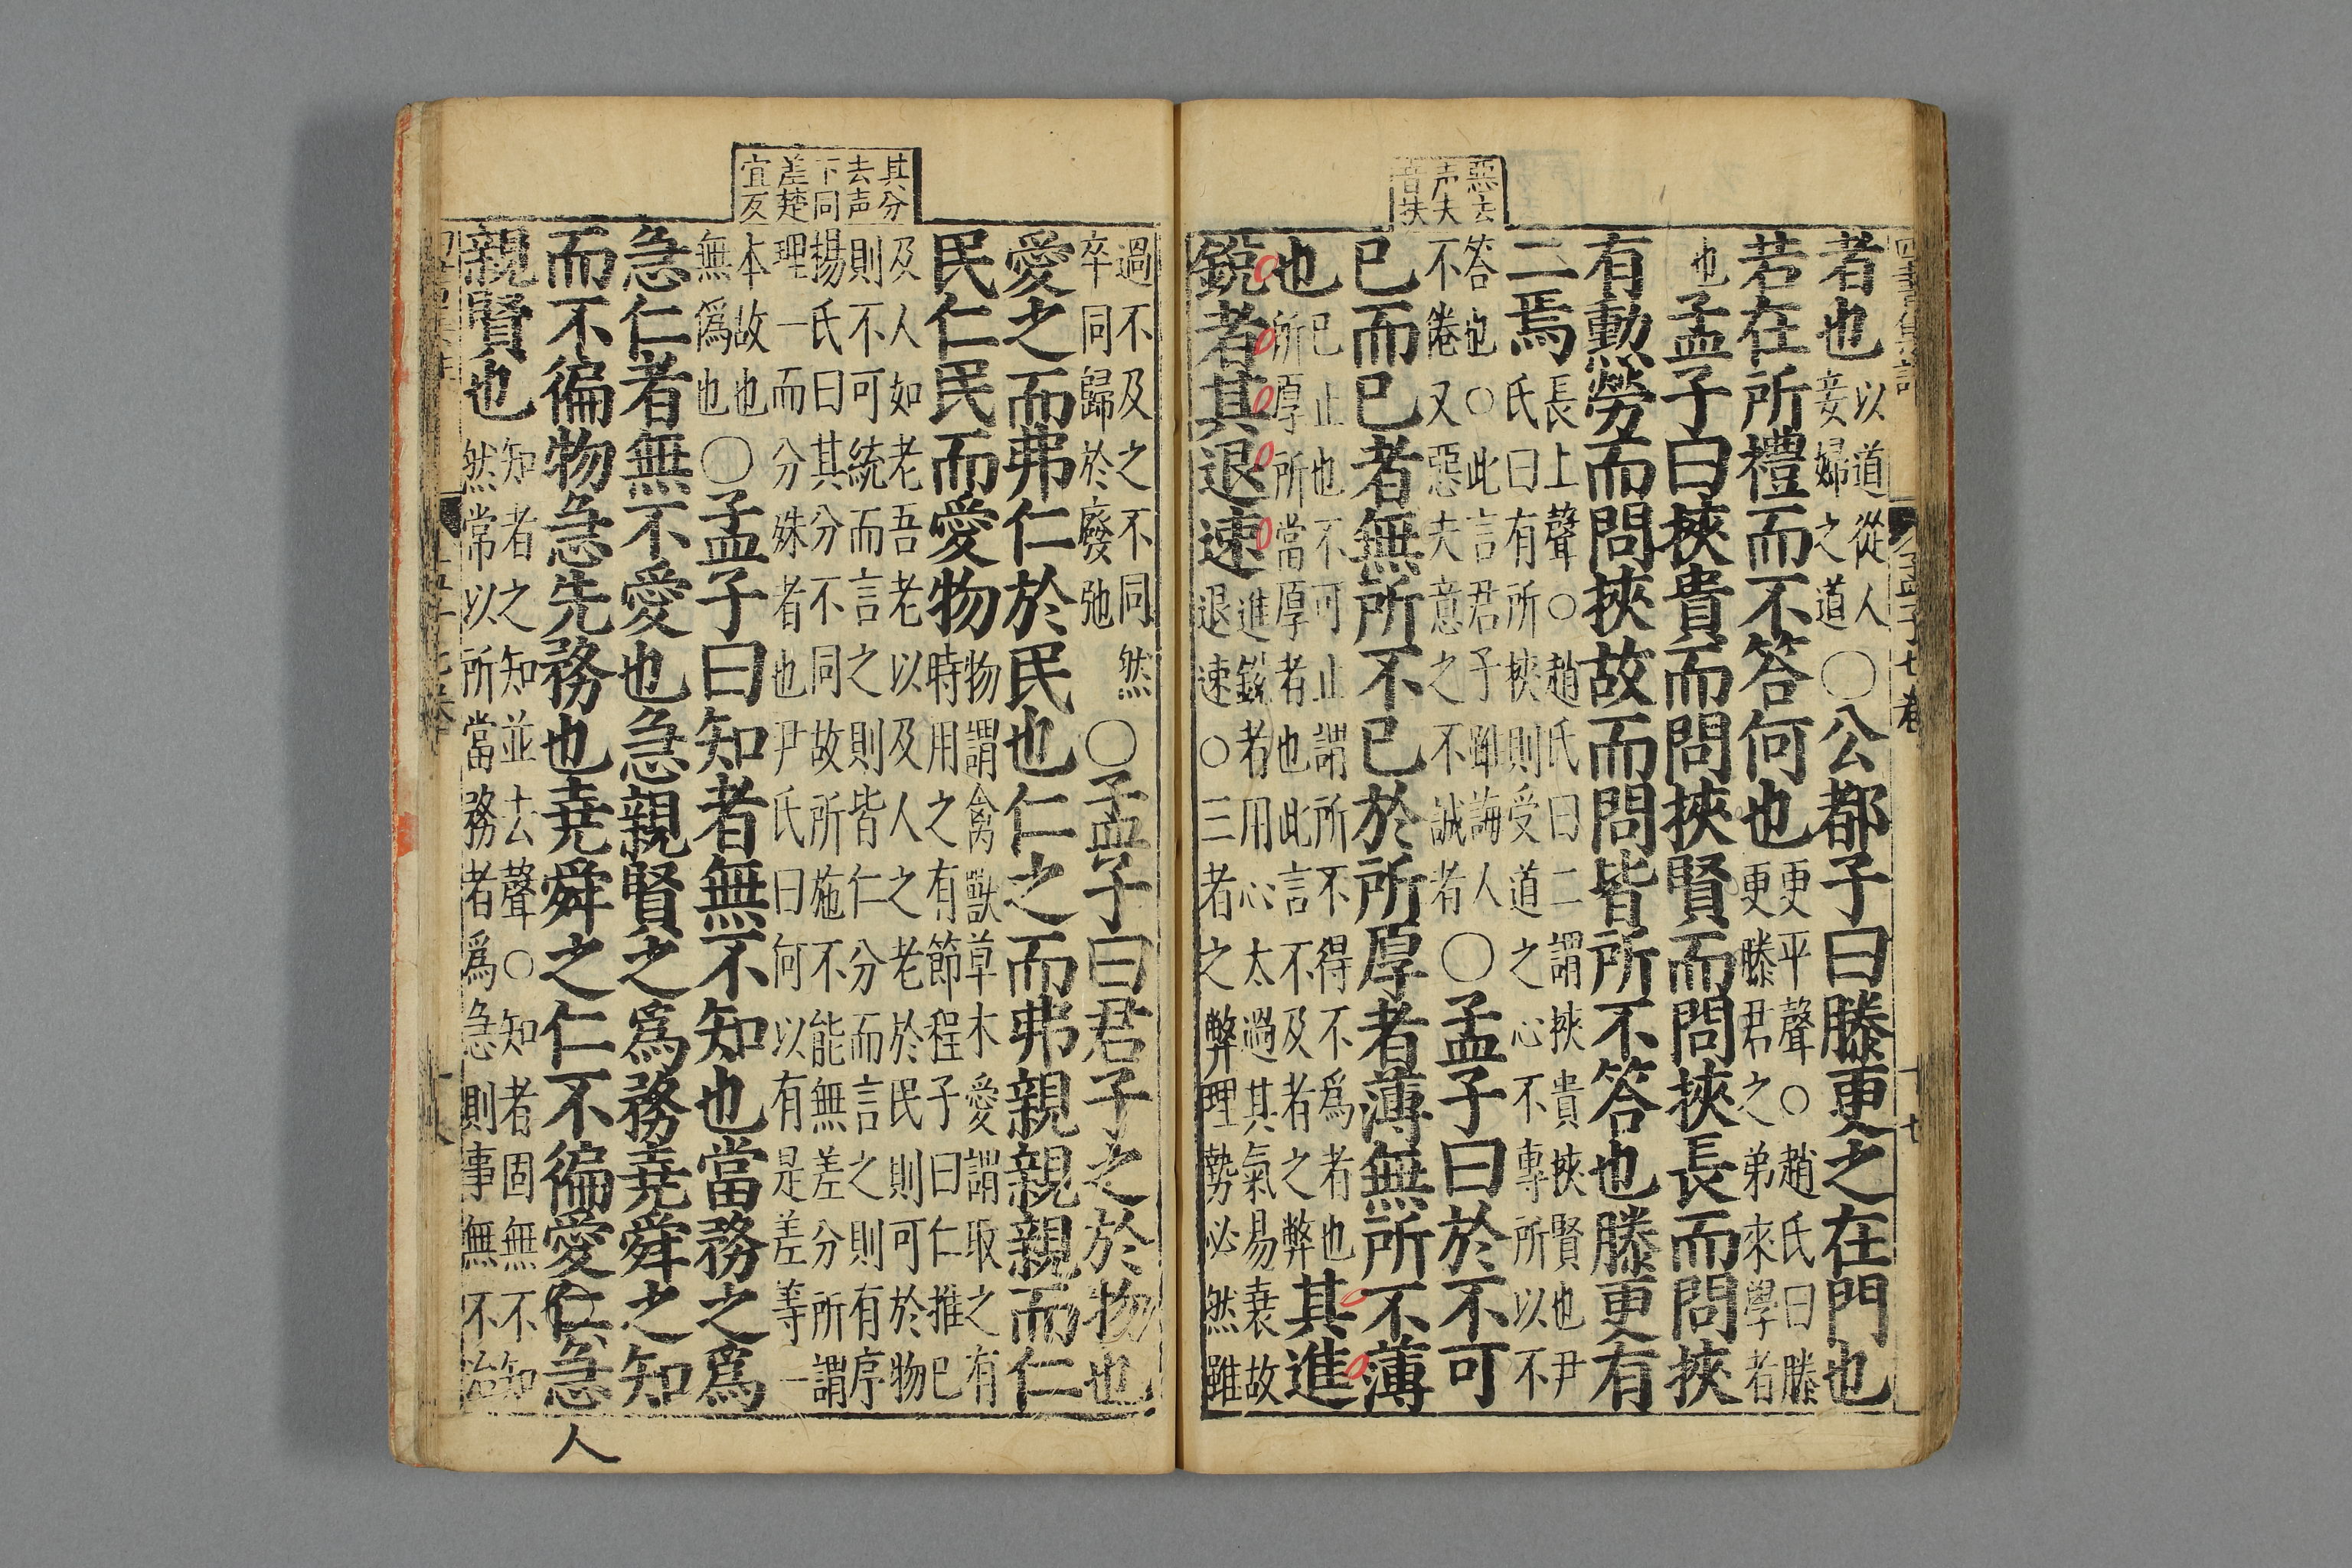 四書集註 孟子七卷 十七
惡去
声夫
音扶
者也以道從人妾婦之道○公都子曰滕更之在門也
若在所禮而不答何也更平聲○趙氏曰滕更滕君之弟來學者
也孟子曰挾貴而問挾賢而問挾長而問挾
有勲勞而問挾故而問皆所不答也滕更有
二焉長上聲○趙氏曰二謂挾貴挾賢也尹氏曰有所挾則受道之心不專所以不
答也○此言君子雖誨人不倦又惡夫意之不誠者○孟子曰於不可
已而已者無所不已於所厚者薄無所不薄
也已止也不可止謂所不得不爲者也所厚所當厚者也此言不及者之弊其進
銳者其退速進銳者用心太過其氣易衰故退速○三者之弊理勢必然雖
其分
去声
下同
差楚
宜反
過不及之不同然卒同歸於廢弛○孟子曰君子之於物也
愛之而弗仁於民也仁之而弗親親親而仁
民仁民而愛物物謂禽獸草木愛謂取之有時用之有節程子曰仁推已
及人如老吾老以及人之老於民則可於物則不可統而言之則皆仁分而言之則有序
揚氏曰其分不同故所施不能無差分所謂理一而分殊者也尹氏曰何以有是差等一
本故也無爲也○孟子曰知者無不知也當務之爲
急仁者無不愛也急親賢之爲務堯舜之知
而不徧物急先務也堯舜之仁不徧愛仁急
人
親賢也知者之知並去聲○知者固無不知然常以所當務者爲急則事無不治